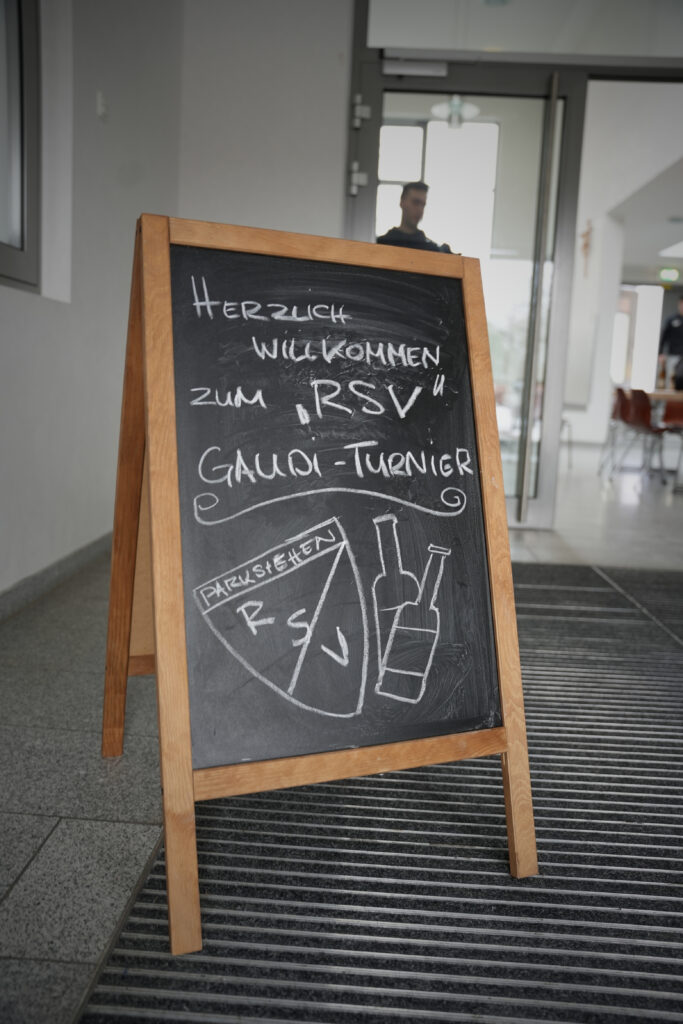 HERZLICH
WILLKOMMEN
ZUM „RSV“
GAUDI-TURNIER
PARKSTEHEN
RSV